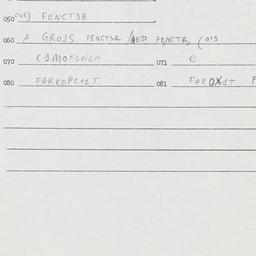 050 (VE) FENCT3R
060 A GROJS FENCT3R / AED FENCTR, ( 013
070 C1MOF1N1M 071 0
080 FARKOPC+1T 081 FAROX1T F